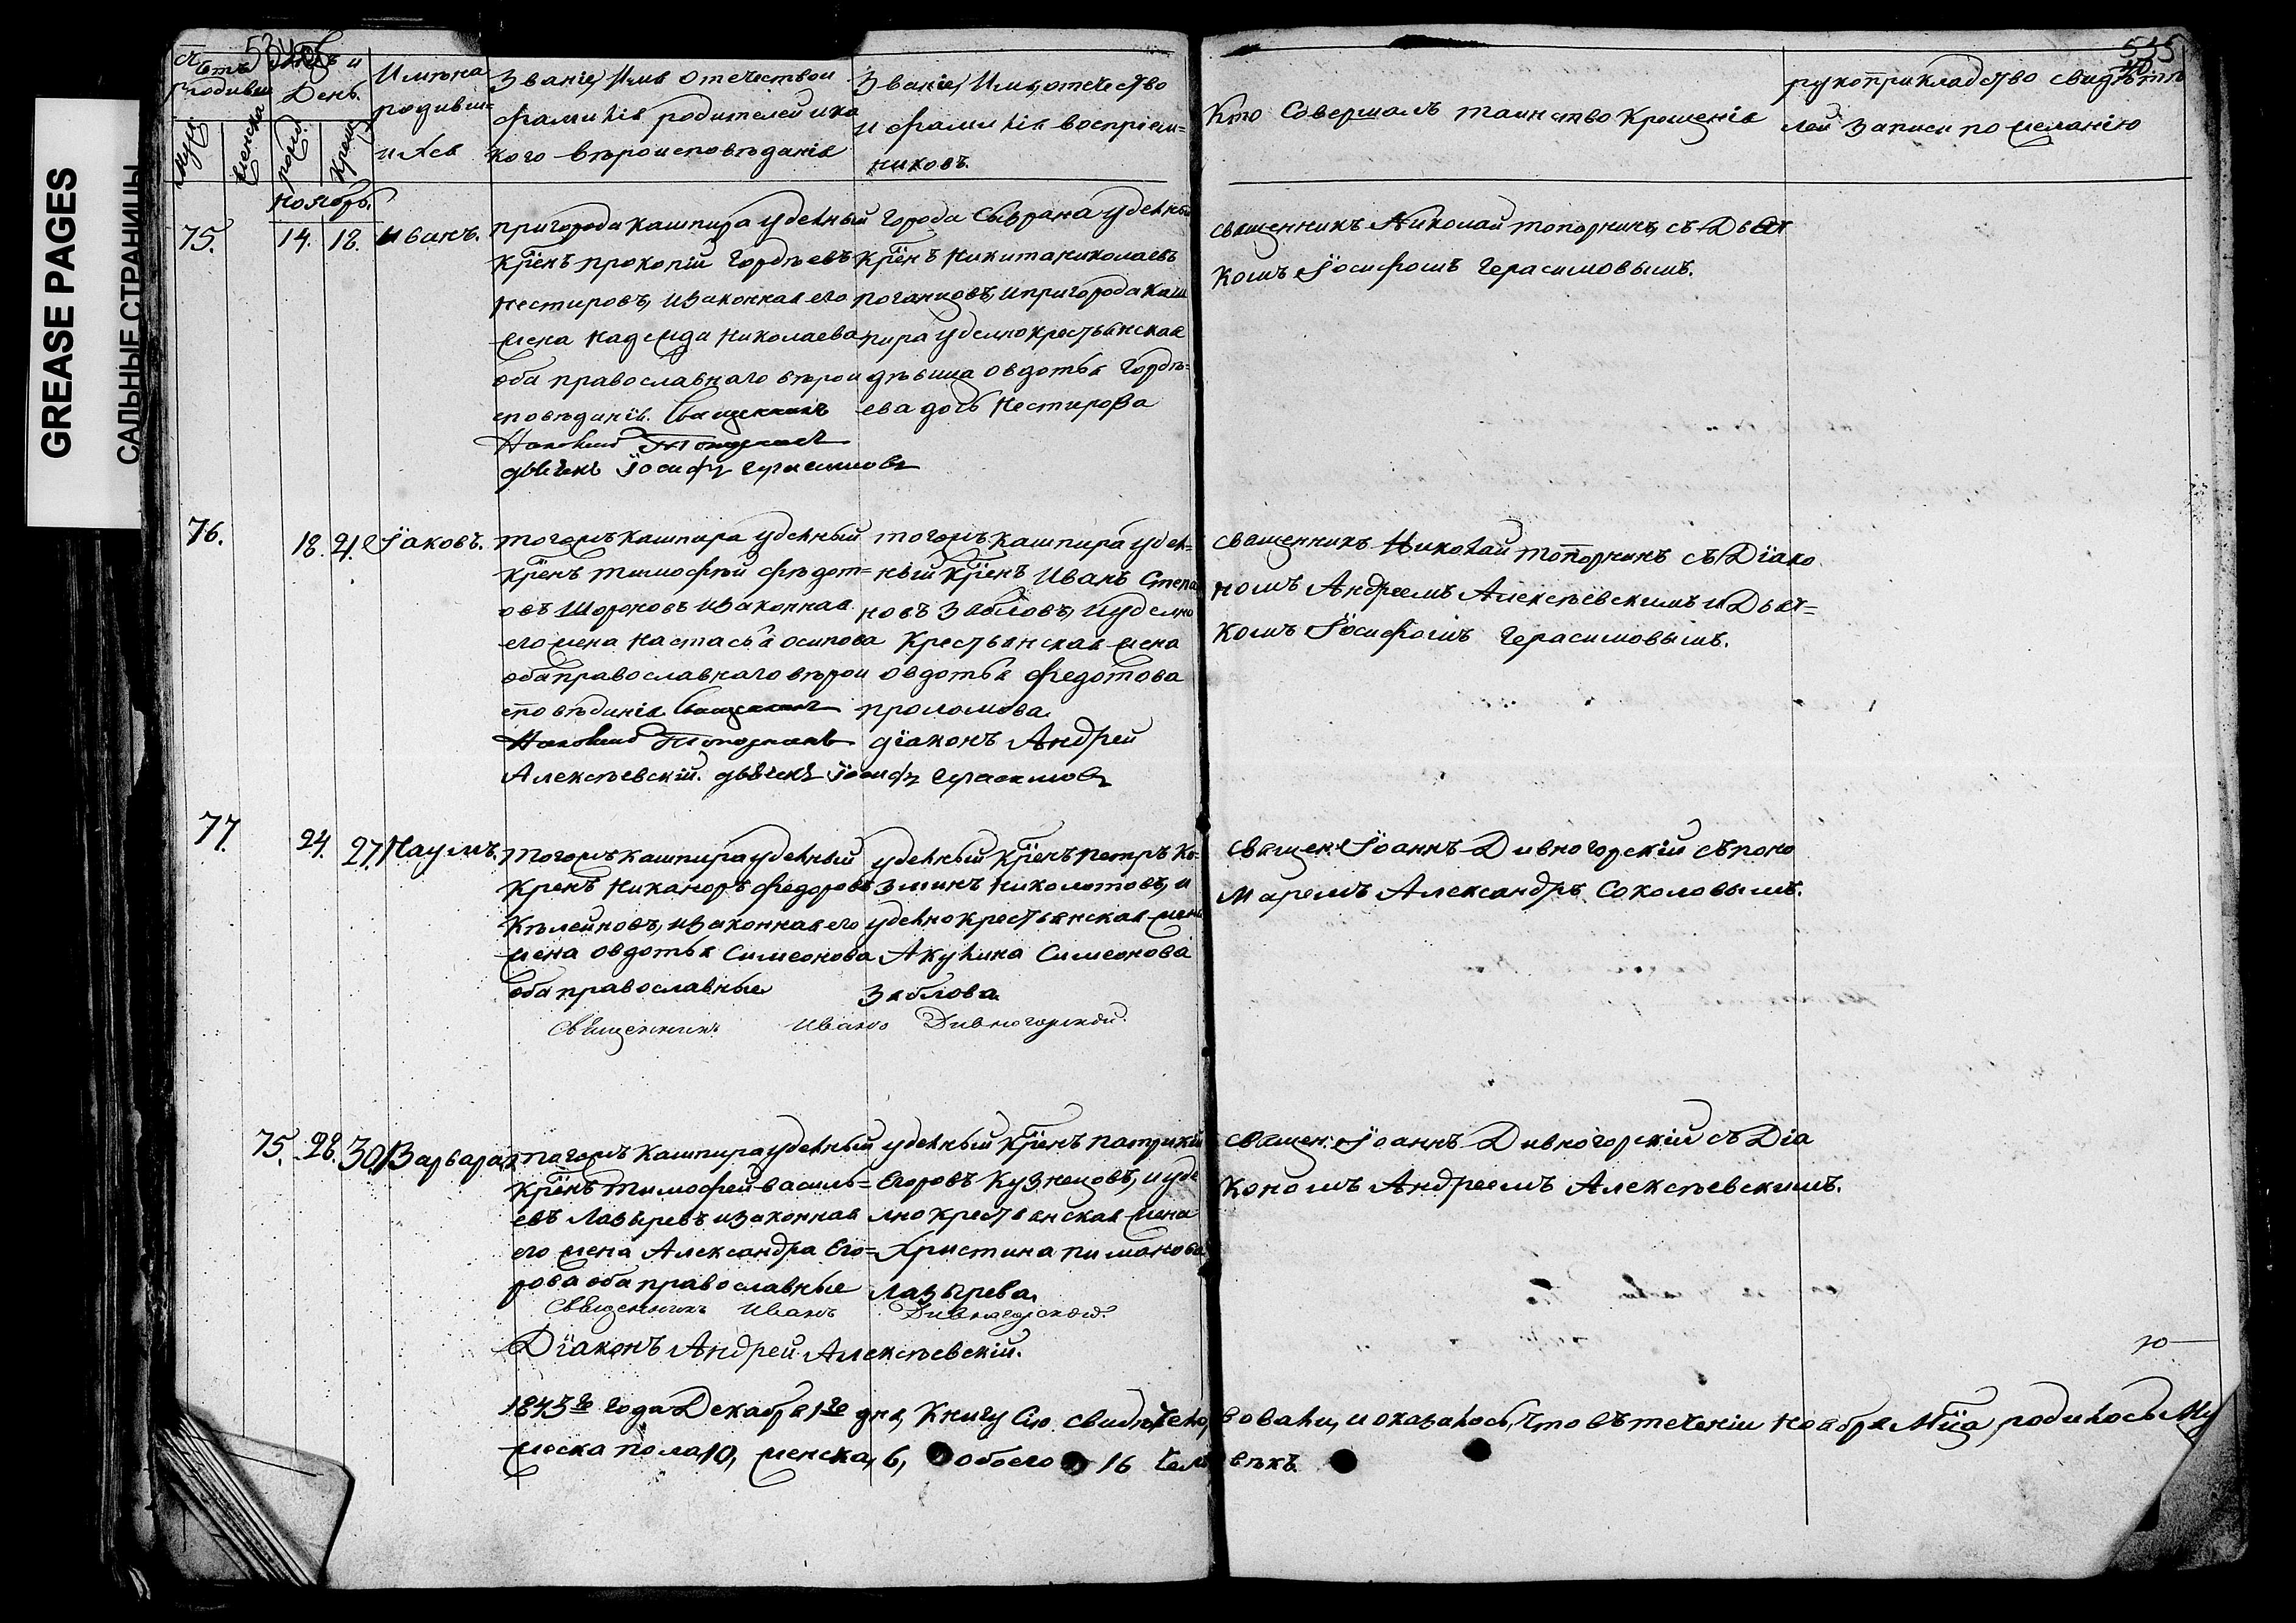 GREASE PAGES
САЛЬНЫЕ СТРАНИЦЫ
535
родивш
День.
Имѣна
родивш=
ихся
Званіе, Имя отечество и
фамилія родителей и ка
кого вѣроисповѣданія
Званіе, Имя, отечество
и фамилія воспріем=
никовъ.
Кто Совершалъ таинство Крещенія
рукоприкладство свидѣте
лей записи по желанію
муж.
женска
рожд.
Крещ.
Ноябрь.
75.
14.
18.
Иванъ.
пригорода Кашпира удельный
Крїенъ прокопій Гордѣевъ
Нестировъ, и законная его
жена Надежда Николаева
оба православнаго вѣрои
споведанія. Священникъ
Николай Топорнинъ
дьячекъ Їосифъ Герасимовъ
Города Сызрана удельный
Крїенъ Никита Николаевъ
поганцовъ, и пригорода Каш
пира уделнокрестьянская
дѣвица Овдотья Гордѣ=
ева дочь Нестирова
священникъ Николай топорнинъ, съ Дьяч
комъ Їосифомъ Герасимовымъ.
76.
18.
21.
Їаковъ.
тогожъ Кашпира удельный
Крїенъ тимофѣй Фѣдот=
овъ Шороновъ и законная
его жена Настасья осипова
оба православнаго вѣрои
споведания Священникъ
Николай Топорнинъ
дїаконъ Андрей
Алексѣевскій. дьячекъ Їосифъ Герасимовъ
тогожъ Кашпира удел=
ный Крїенъ Иванъ Степа
новъ Зябловъ, и уделно
Крестьянская жена
Овдотья Федотова
проломова.
священникъ Николай топорнинъ съ Дїако
номъ Андреемъ Алексѣевскимъ и Дьяч=
комъ Їосифомъ Герасимовымъ.
77.
24.
27.
Наумъ.
тогожъ Кашпира удельный
Крїенъ Никаноръ Федоровъ
Кѣлейновъ, и законная его
жена Овдотья Симеонова
оба православные
удельный Крїенъ петръ Ко=
зминъ Николотовъ, и
удельнокрестьянская жена
Акулина Симеонова
Зяблова.
Священникъ Иванъ Дивногорской.
священ: Їоаннъ Дивногорскій съ поно
маремъ Александръ Соколовымъ.
75.
28.
30.
Варвара.
тогожъ Кашпира удельный
Крїенъ Тимофей Василь=
евъ Лазыревъ и законная
его жена Александра Его=
рова оба православные
удельный Крїенъ патрикій
Егоровъ Кузнецовъ, и уде
лнокрестьянская жена
Христина пиманова
Лазырева.
Священникъ Иванъ Дивногорской.
Дїаконъ Андрей Алексѣевскій.
священ: Їоаннъ Дивногорскій съ Діа
кономъ Андреемъ Алексѣевскимъ.
ю
1843го года Декабря 1го дня, Книгу Сію свидѣтельствовали, и оказалось, что въ теченіи Ноября Мца, родилось Му
жеска пола, 10, женска, 6, обоего 16 человѣкъ.